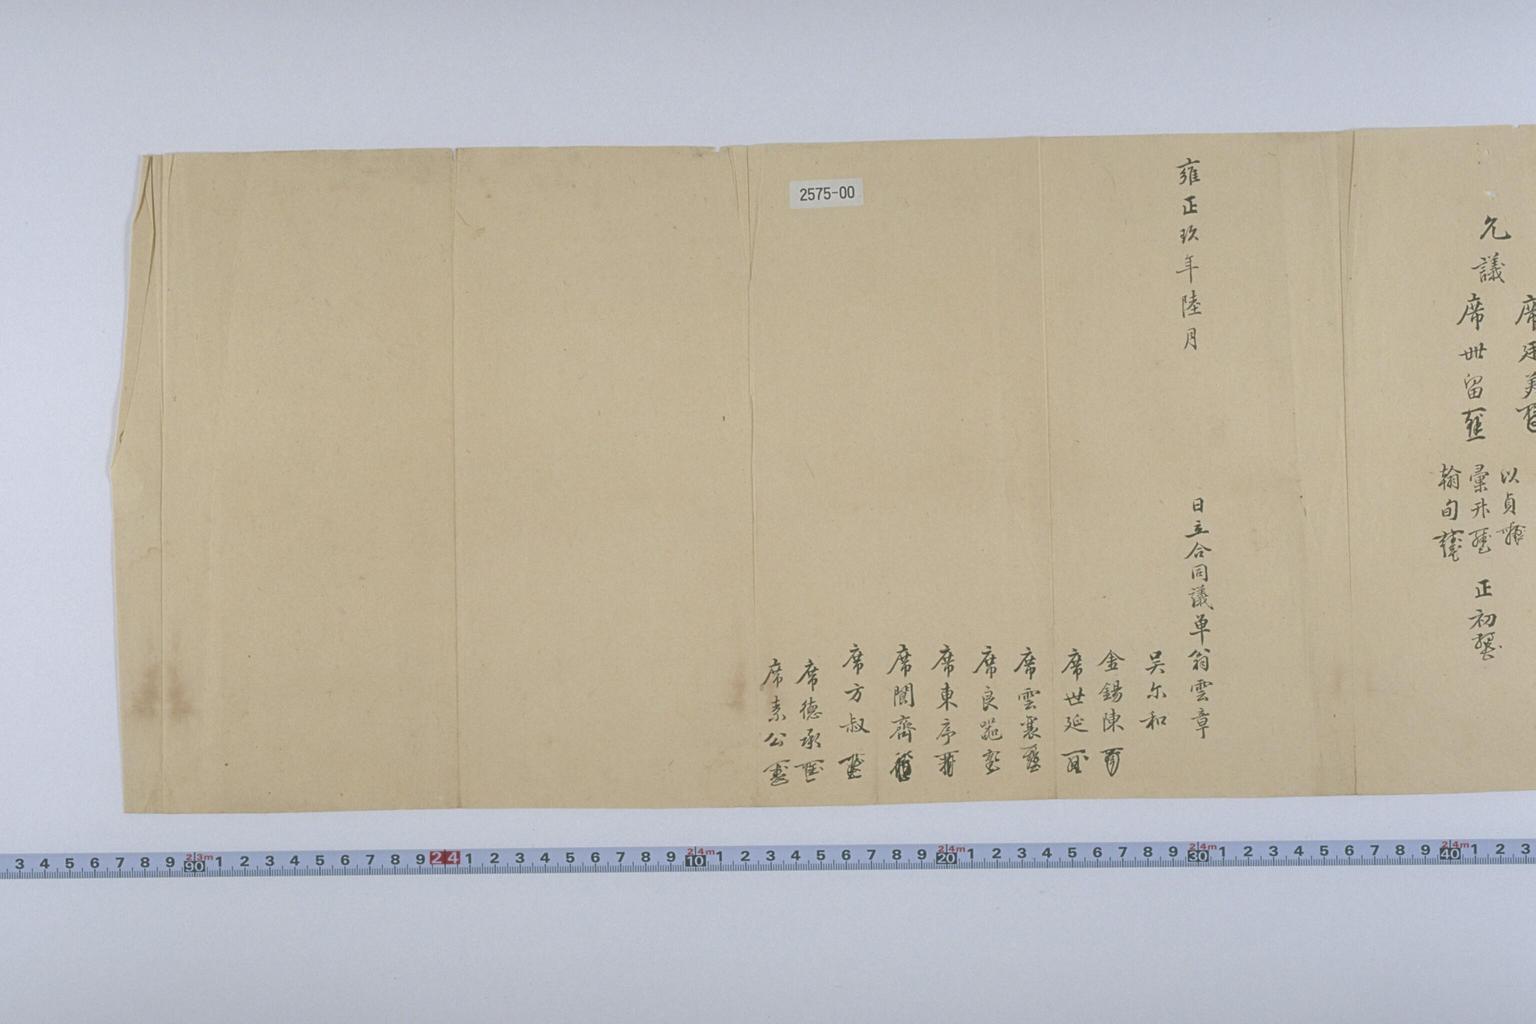 席
允議
席世留
以貞
彙升
翰旬
正初
雍正玖年陸月
日立合同議单翁雲章
吴尔和
金錫陳
席世延
席雲襄
席良
席東序
席閶齋
席方叔
席德承
席素公
2575-00
3 4 5 6 7 8 9 90 1 2 3 4 5 6 7 8 9 24 1 2 3 4 5 6 7 8 9 10 1 2 3 4 5 6 7 8 9 20 1 2 3 4 5 6 7 8 9 30 1 2 3 4 5 6 7 8 9 40 1 2 3